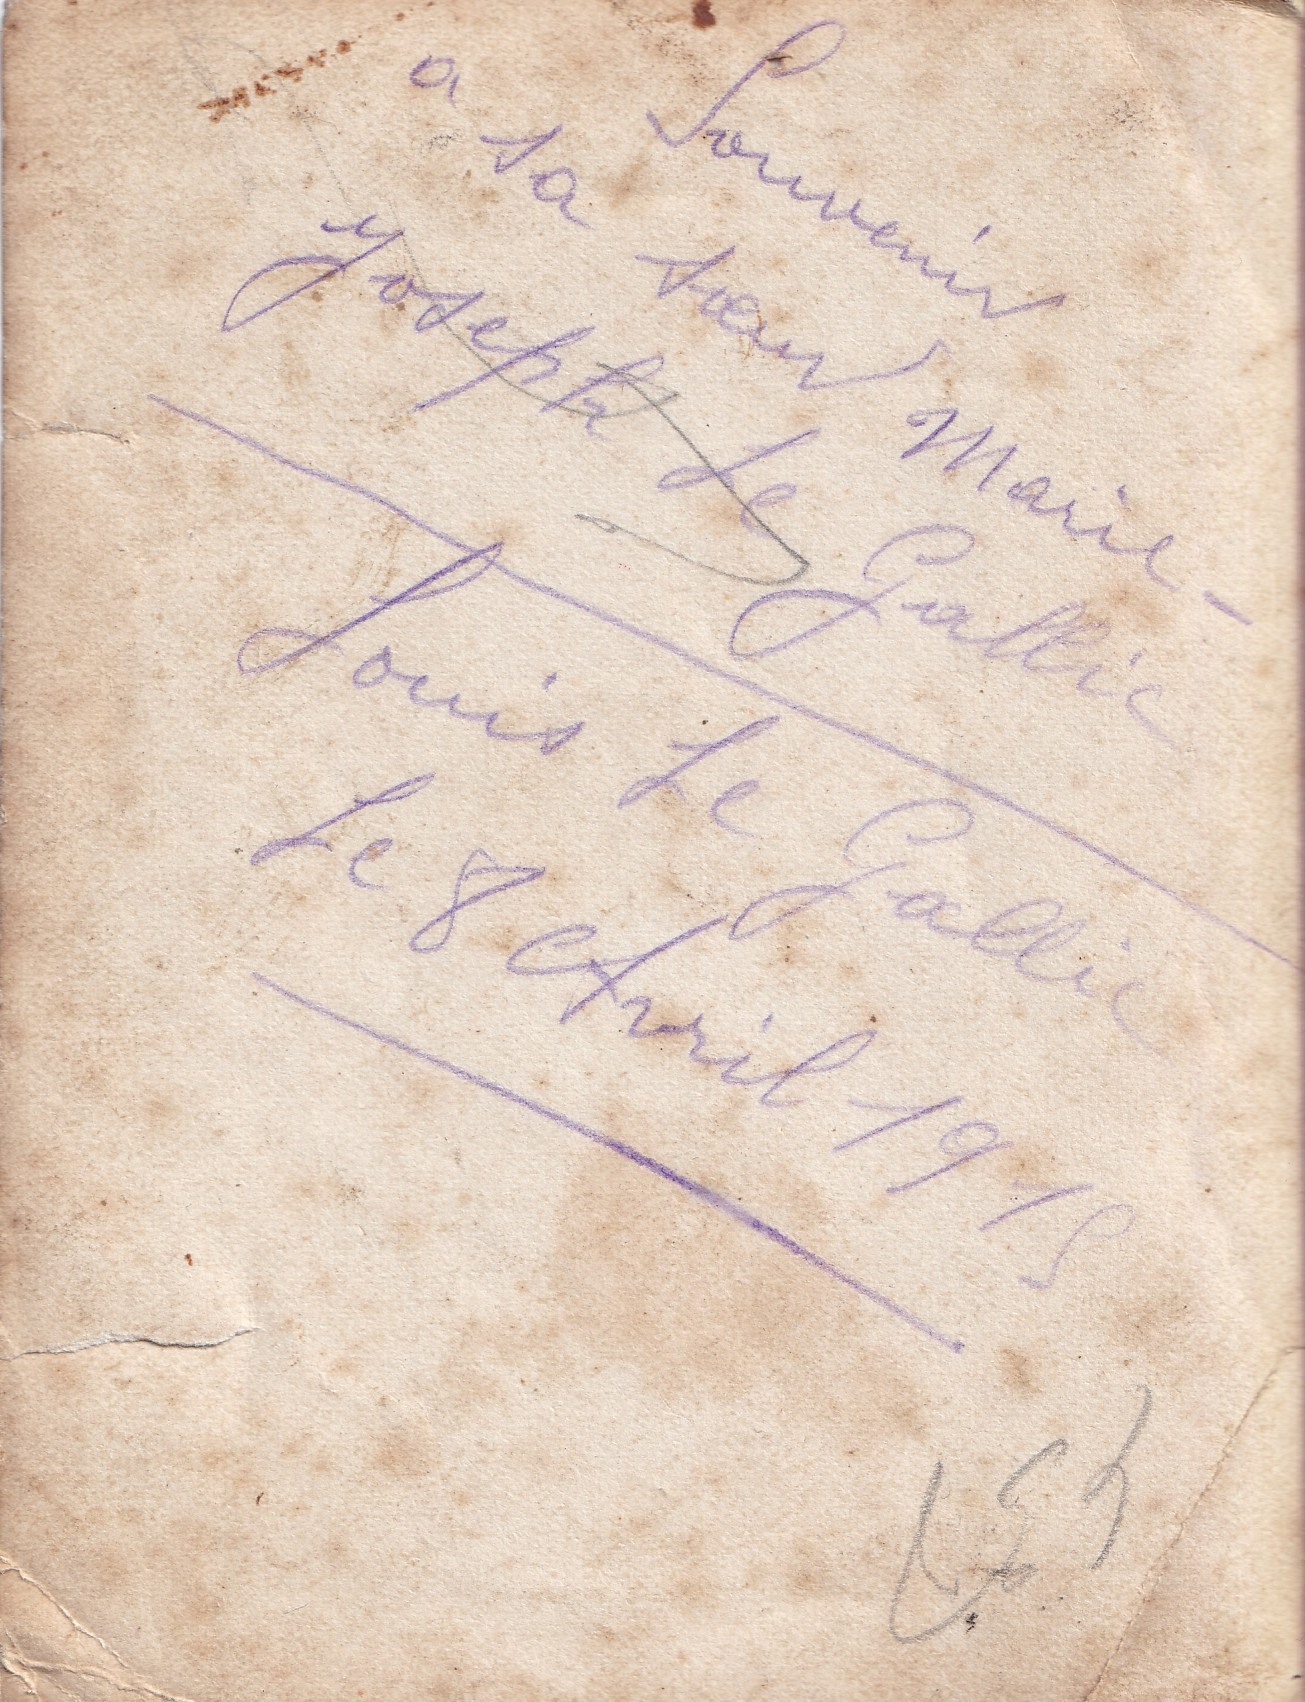 Souvenir
a sa sœur Marie-
Joseph Le Gallic
Louis Le Gallic
Le 8 Avril 1915